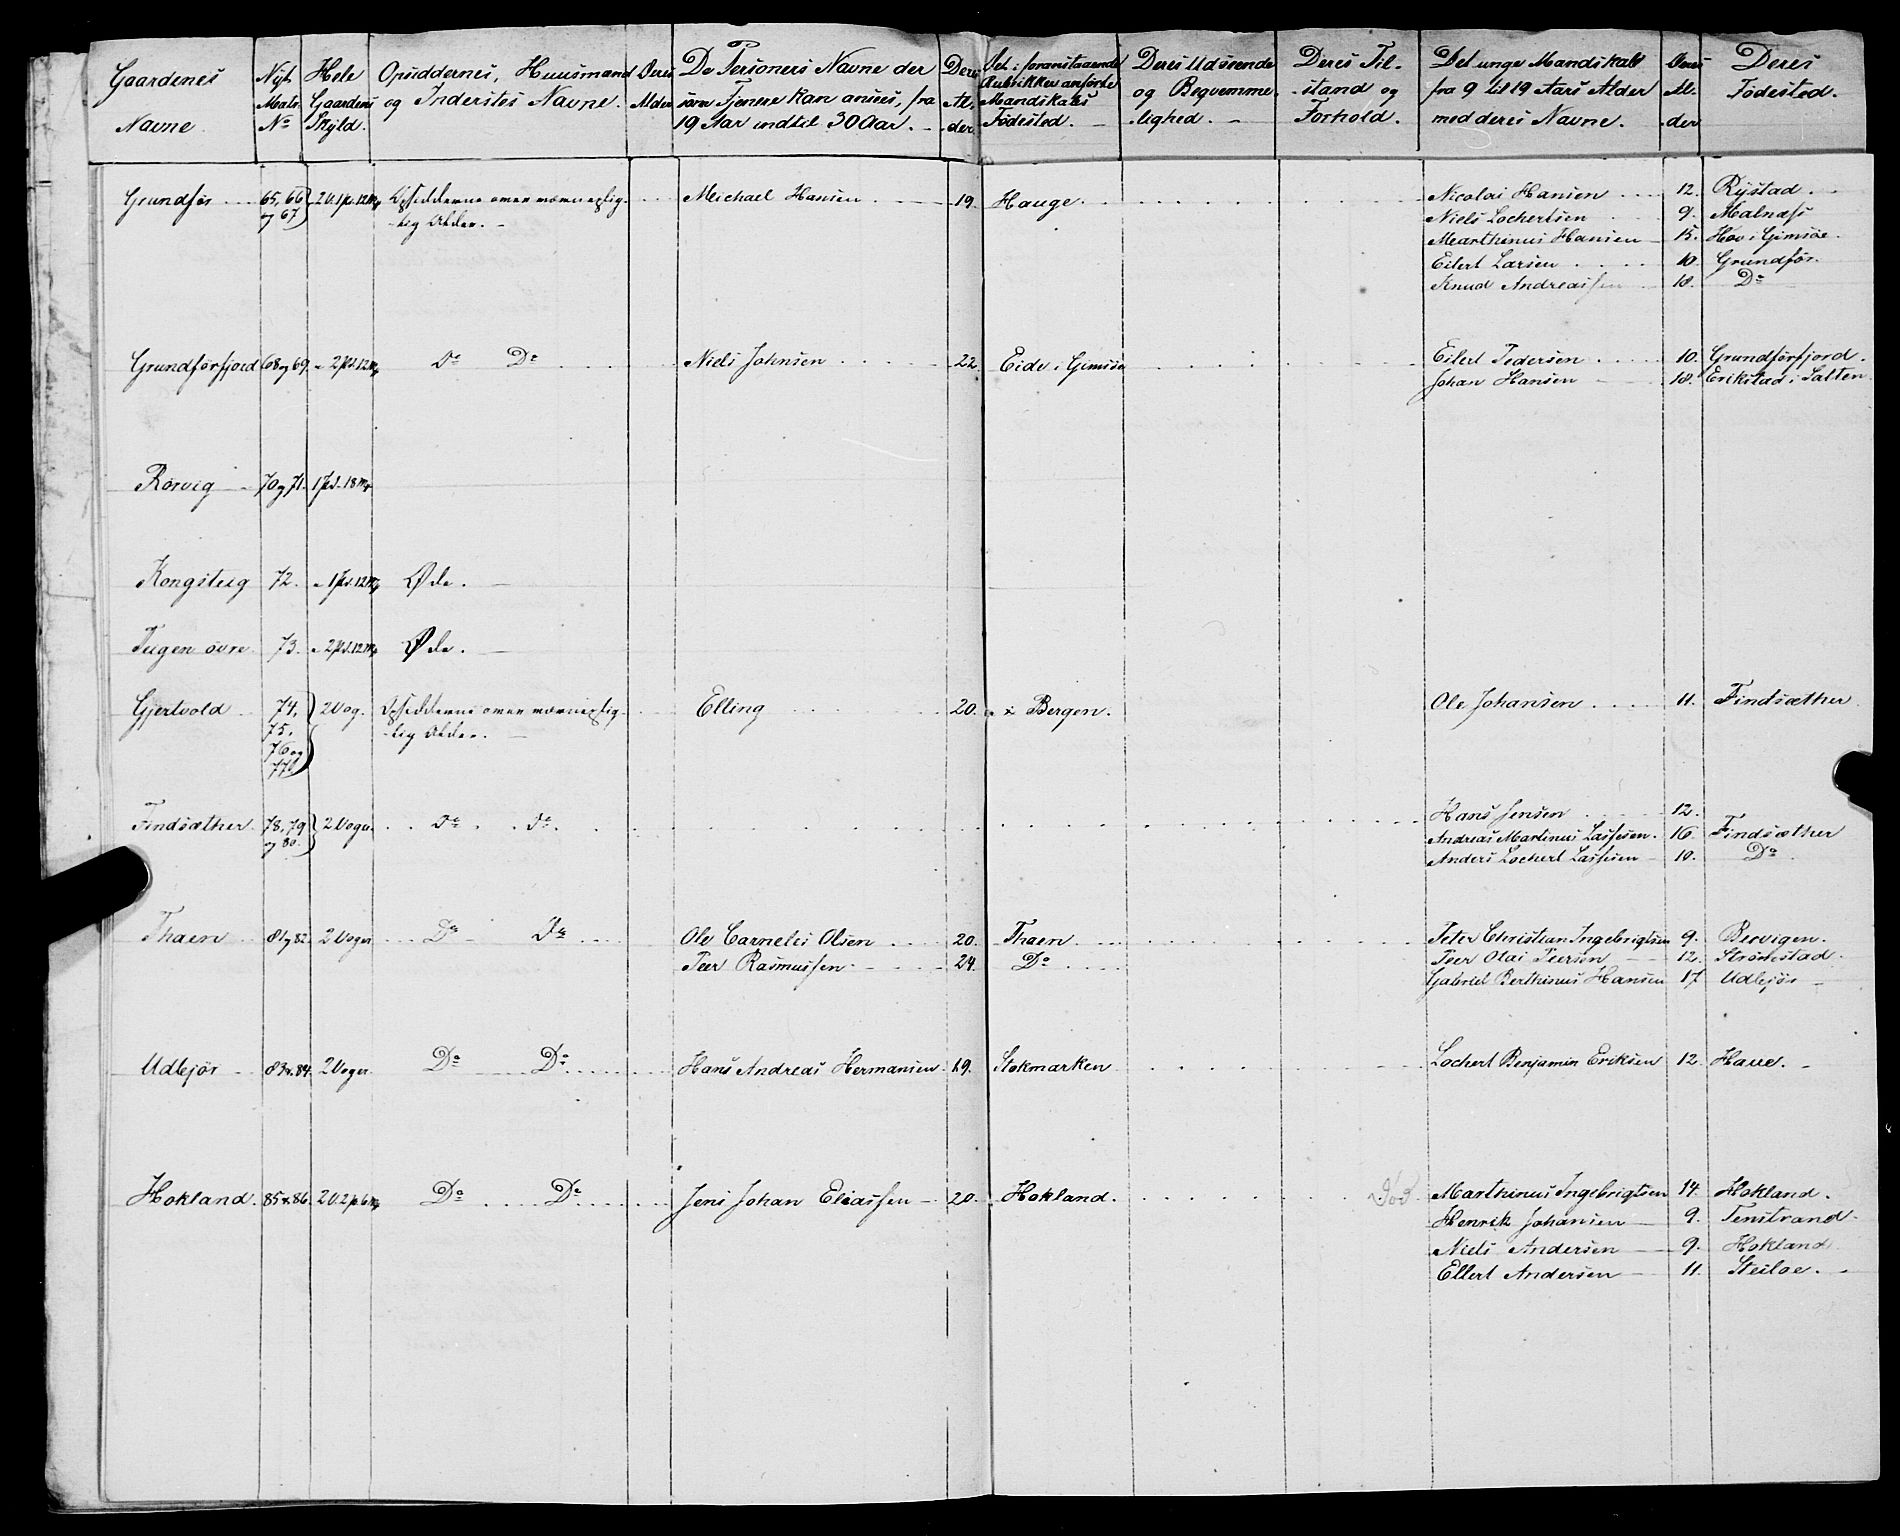 Gaardenes Navne | Nyt Matr. No | Hele Gaardens Skyld. | Opsiddernes, Huusmænd og Inderstes Navne. | Deres Alder | De Personers Navne der som Tjenere kan ansees, fra 19 Aar indtil 30 Aar. | Deres Al-der. | Det i foranstaaende Rubrikker anførte Mandskabs Fødested. | Deres Udseende og Beqvemme-lighed. | Deres Til-stand og Forhold. | Det unge Mandskab fra 9 til 19 Aars Alder med deres Navne. | Deres Al-der | Deres Fødested.
Grundför | 65, 66 og 67 | 2 V. 1 pd. 12 Mk | Opsidderne over værnepligtig Alder. | Michael Hansen | 19. | Hauge. | Nicolai Hansen | 12. | Rystad.
Niels Lochertsen | 9. | Malnæs
Marthinus Hansen | 15. | Hov i Gimsöe.
Eilert Larsen | 10. | Grundför.
Knud Andreassen | 18. | Do
Grundförfjord | 68 og 69. | " 2 pd. 12 Mk | Do Do | Niels Johnsen | 22. | Eide i Gimsöe | Eilert Pedersen | 10. | Grundförfjord.
Johan Hansen | 18. | Erikstad i Salten
Rörvig | 70 og 71. | 1 pd. 18 Mk
Kongsteig | 72. | " 1 pd. 12 Mk | Øde.
Teigen övre | 73. | " 2 pd. 12 Mk | Øde.
Gjertvold | 74, 75, 76 og 77 | 2 Vog. | Opsidderne over værnepligtig Alder. | Elling | 20. | i Bergen. | Ole Johansen | 11. | Findsæther
Findsæther. | 78, 79 og 80. | 2 Voger. | Do Do | Hans Jensen | 12.
Andreas Martinus Lassesen. | 16. | Findsæther
Anders Lochert Lassesen | 10. | Do
Thaen | 81 og 82. | 2 Voger | Do Do | Ole Cornelis Olsen | 20. | Thaen | Peter Christian Ingebrigtsen | 9. | Bervigen.
Peer Rasmussen | 24. | Do | Peer Olai Peersen | 12. | Strönstad.
Gabriel Berthinus Hansen | 17 | Udlejör
Udlejör | 83 & 84. | 2 Voger | Do Do | Hans Andreas Hermansen | 19. | Stokmarken | Lochert Benjamin Eriksen | 12. | Haue.
Hokland. | 85 & 86. | 2 V. 2 pd. 6 Mk | Do Do | Jens Johan Eliassen | 20. | Hokland. | Död | Marthinus Ingebrigtsen | 14. | Hokland.
Henrik Johansen | 9. | Tenstrand.
Niels Andersen | 9. | Hokland
Ellert Andersen | 11. | Steiloe.